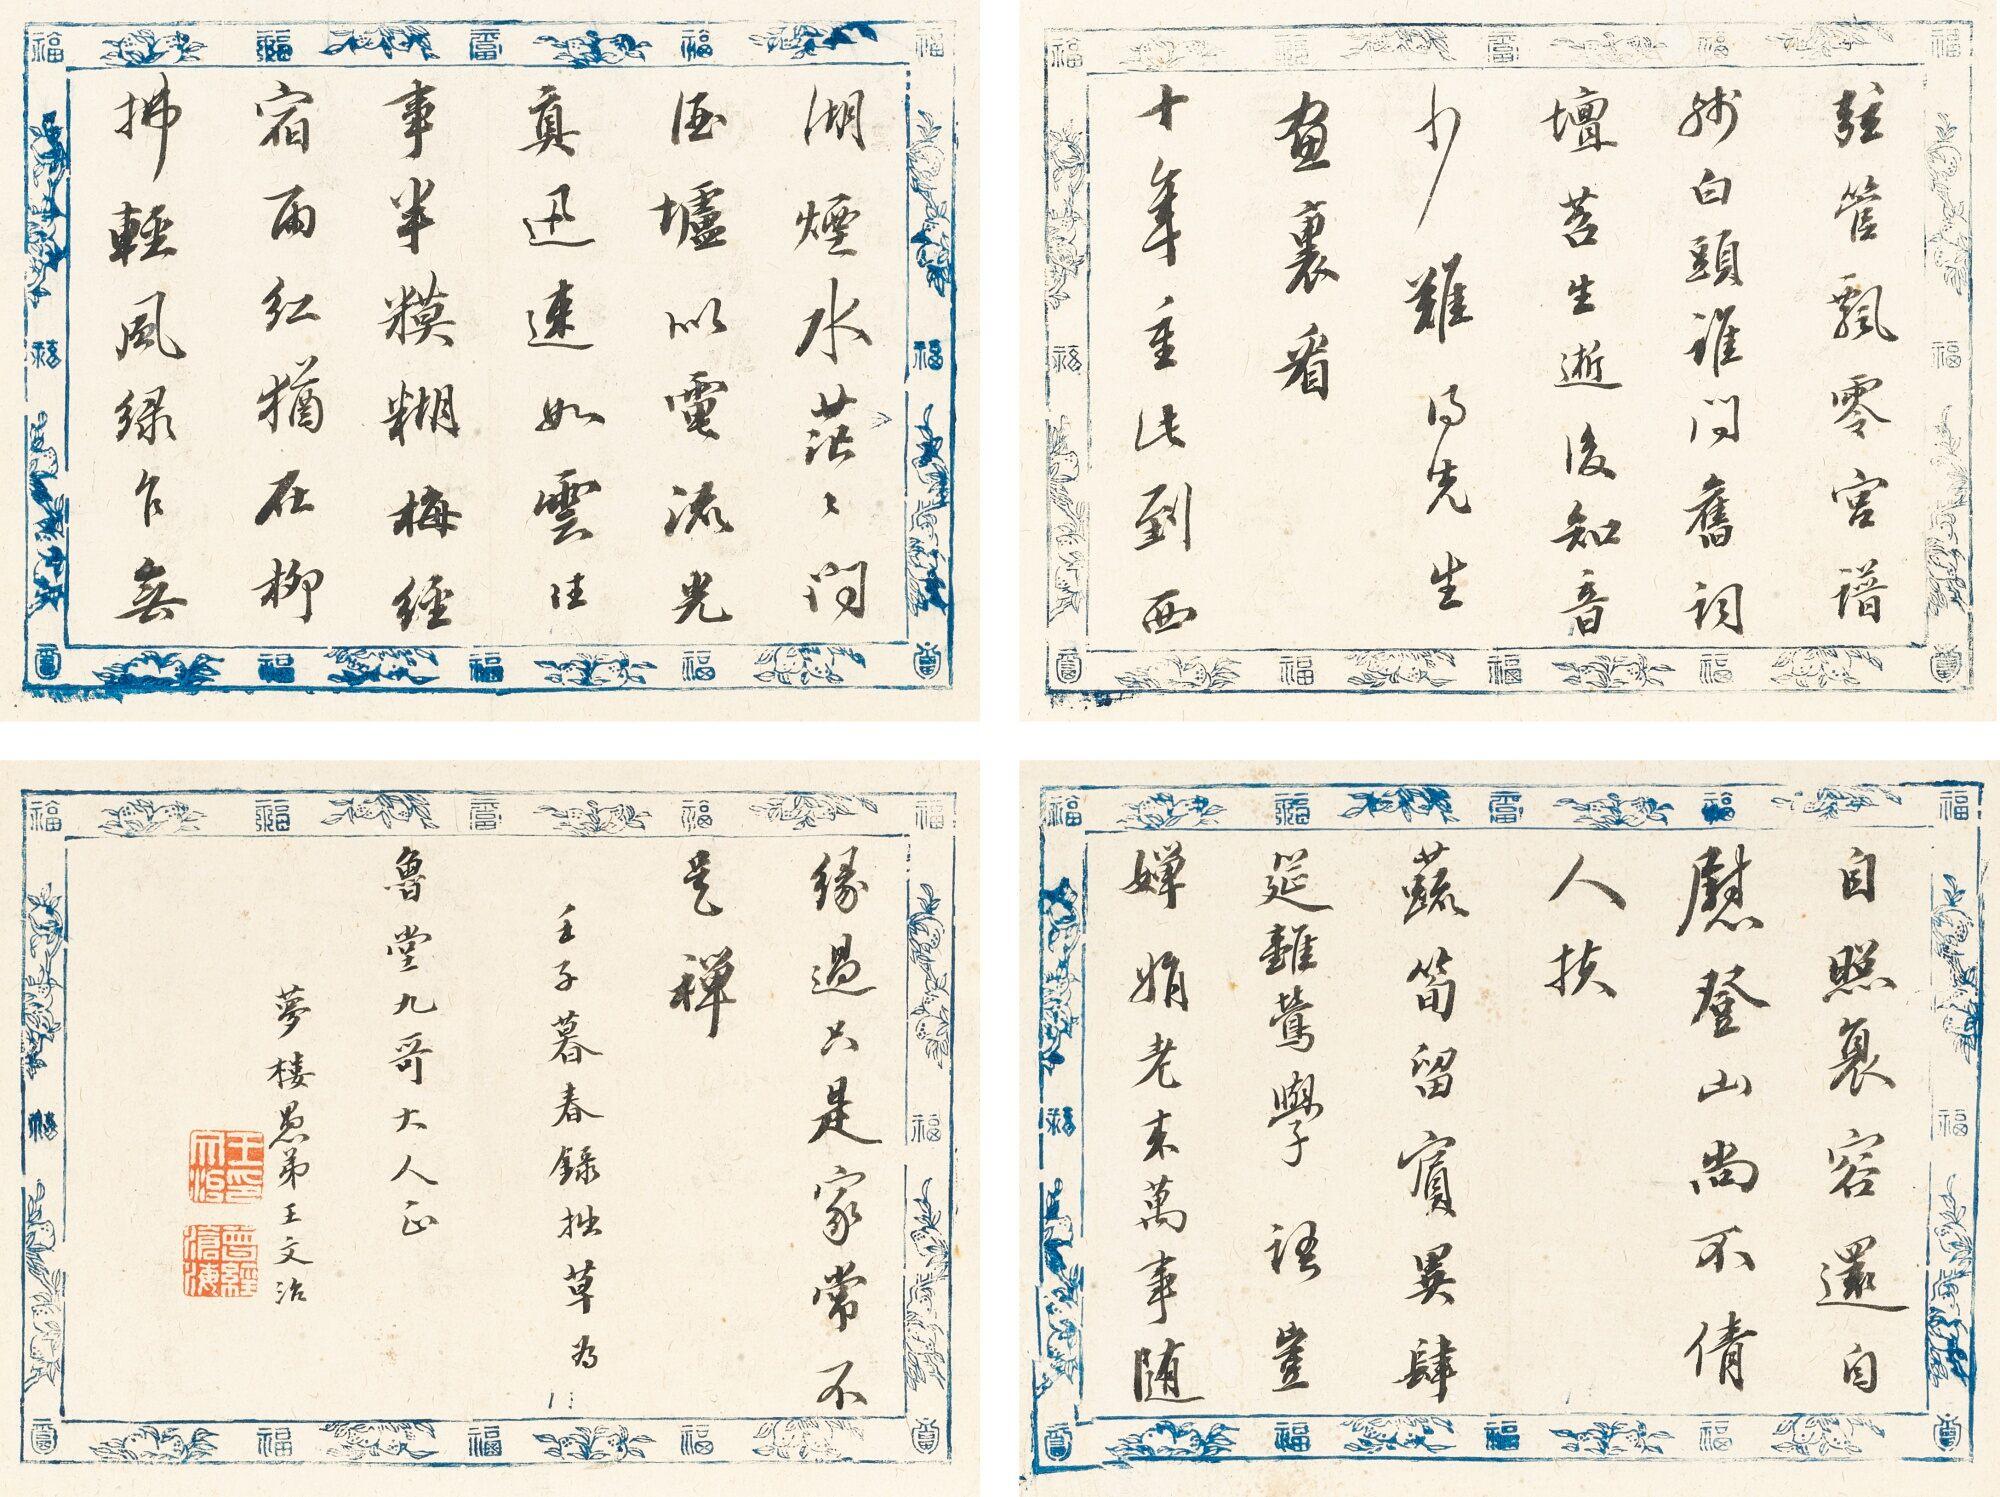 絃管飄零宮譜
殘白頭誰問舊詞
壇茗生逝後知音
少難得先生
畫裏看
十年重此到西
湖煙水茫〻問
酒壚似電流光
真迅速如雲往
事半糢糊梅經
宿雨紅猶在柳
拂輕風綠乍無
自照衰容還自
慰登山尚不倩
人扶
蔬筍留賓異肆
筵雛鶯學語豈
嬋娟老來萬事隨
緣過只是家常不
是禪
壬子暮春錄拙草為
魯堂九哥大人正
夢樓愚弟王文治
王文治印
曾經滄海